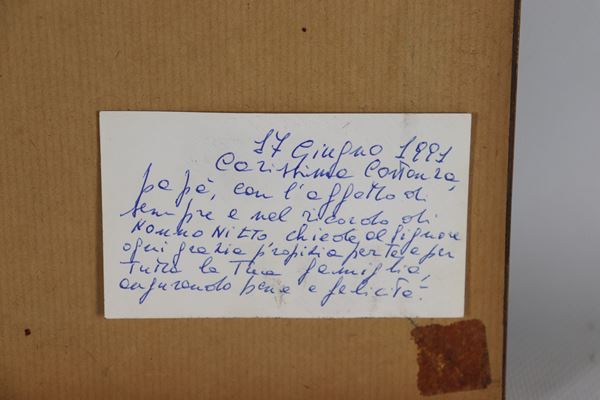 17 Giugno 1991
Carissima Costanza,
papà, con l'affetto di
sempre e nel ricordo di
Nonno Nitto, chiede al Signore
ogni grazia propizia per te e per
tutta la Tua famiglia,
augurando pace e felicità!